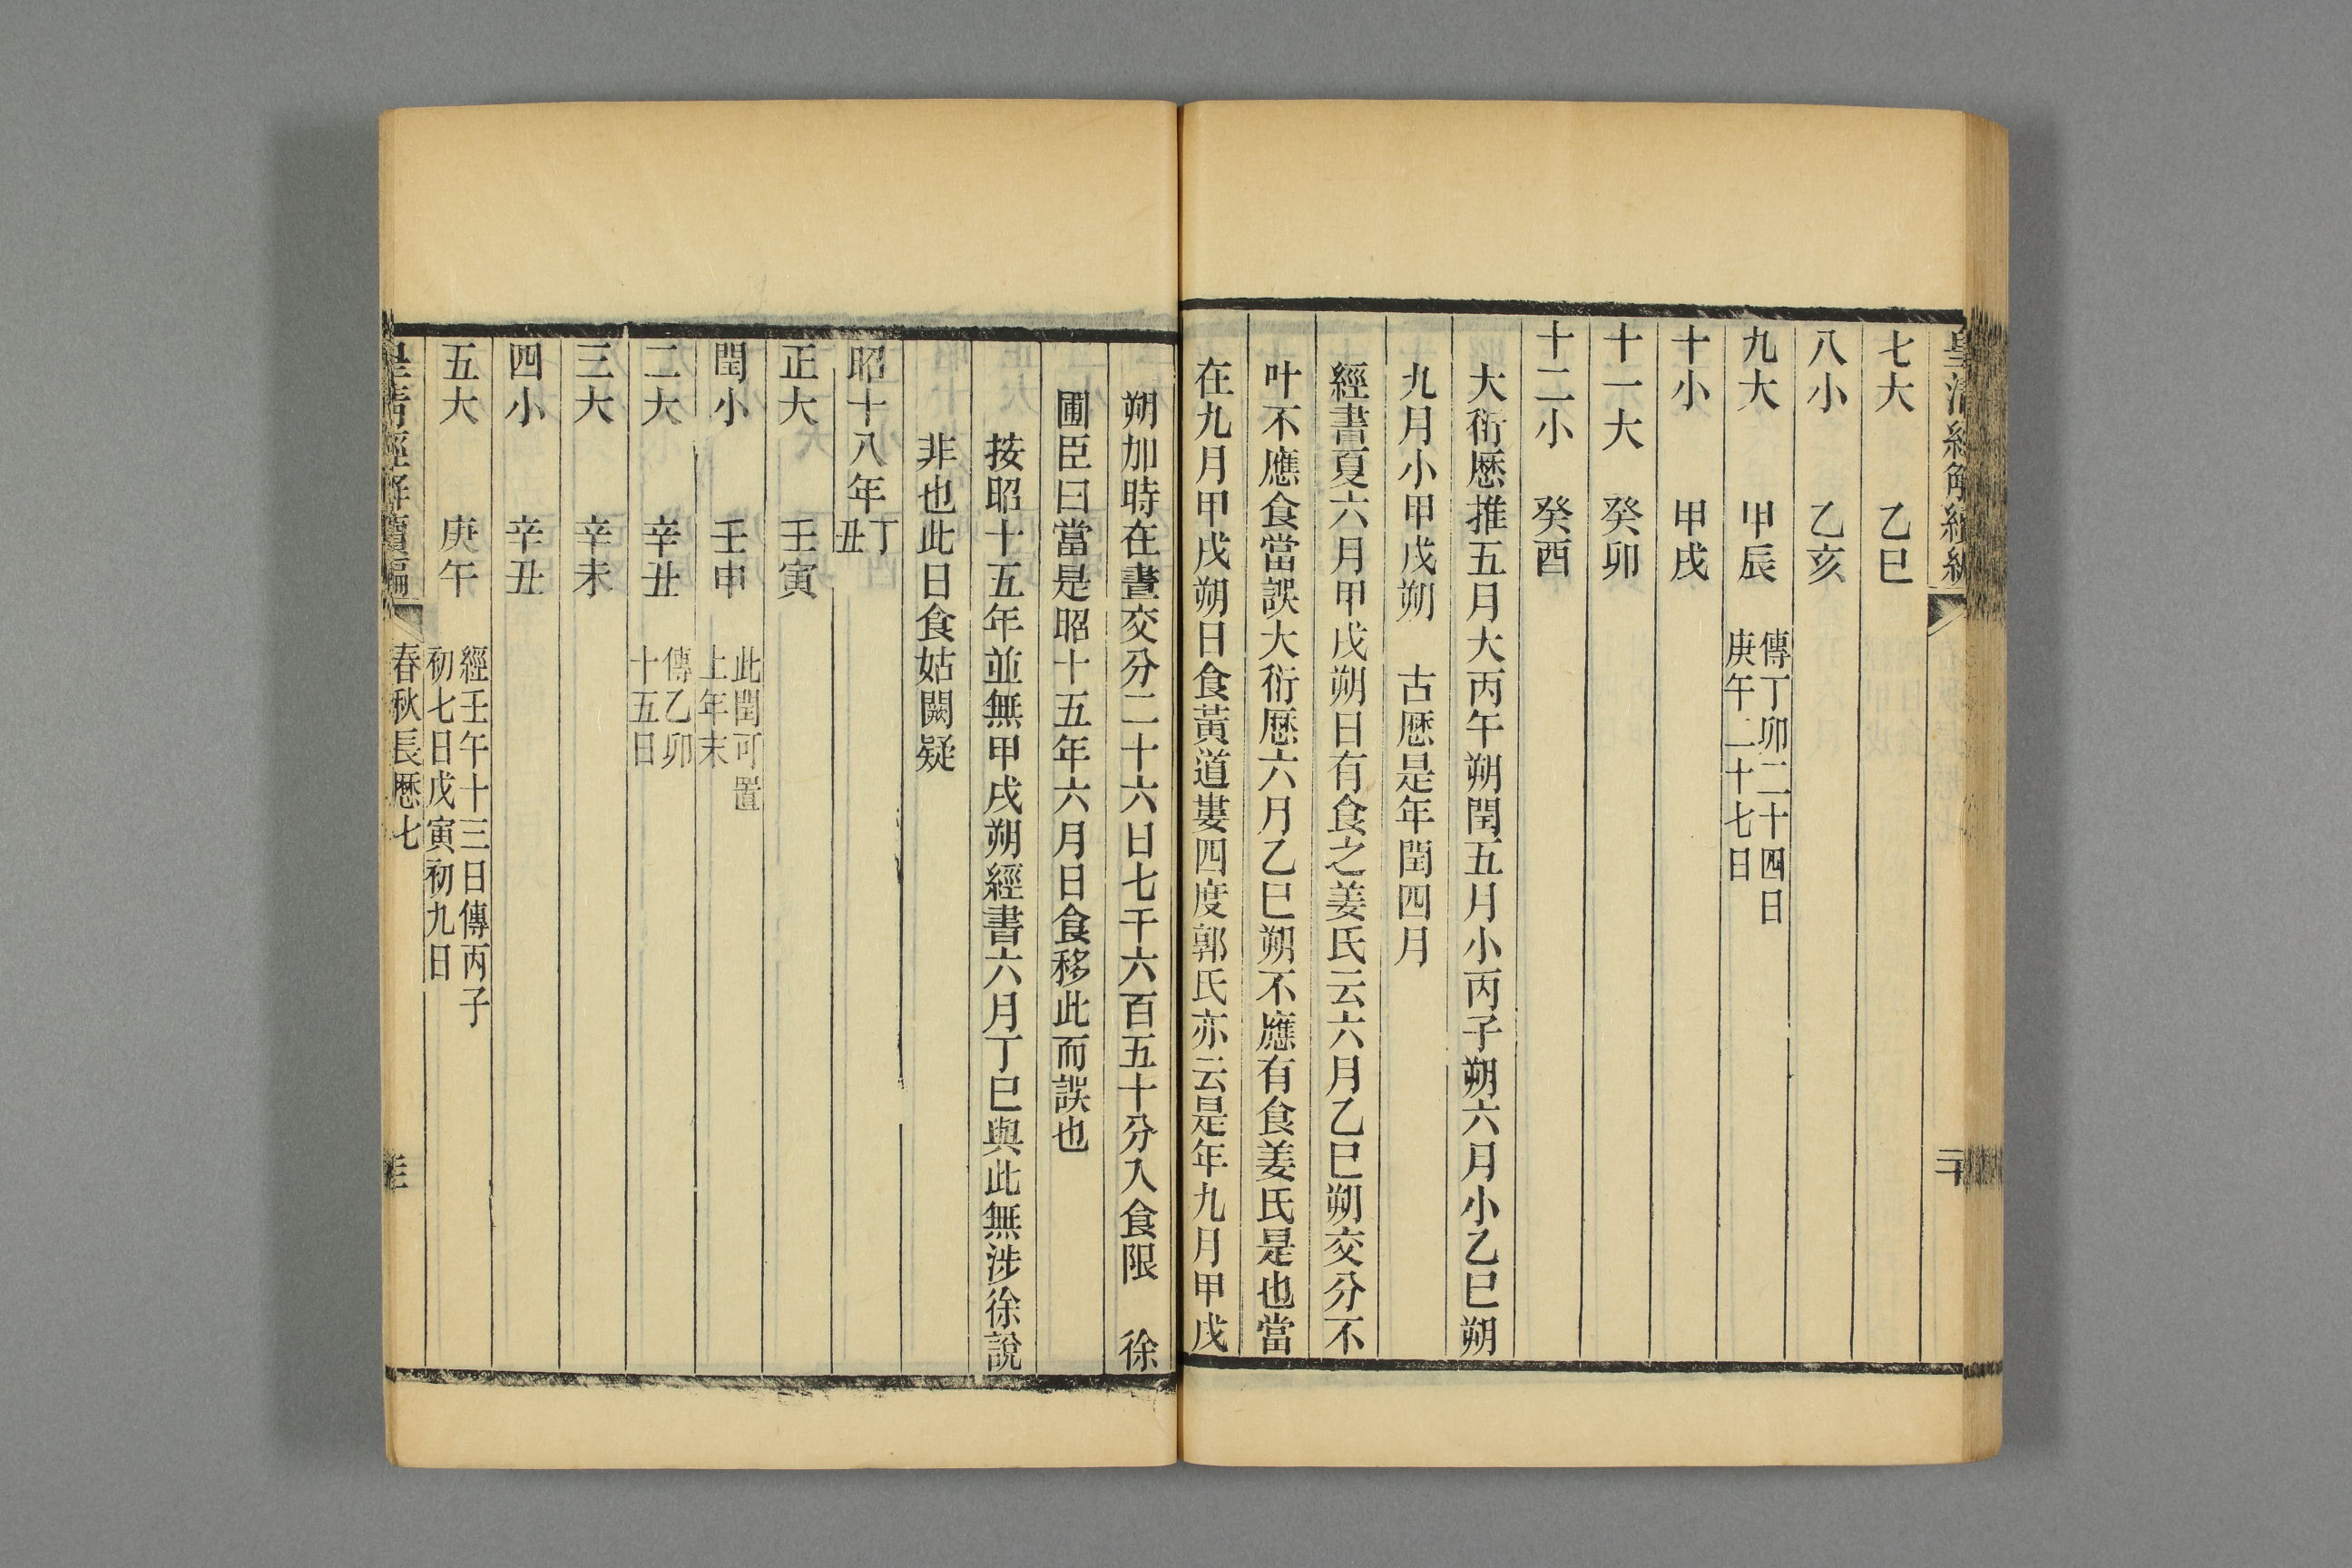 皇清經解續編
七大　乙巳
八小　乙亥
九大　甲辰　傳丁卯二十四日
庚午二十七日
十小　甲戌
十一大　癸卯
十二小　癸酉
大衍厯推五月大丙午朔閏五月小丙子朔六月小乙巳朔
九月小甲戌朔　古厯是年閏四月
經書夏六月甲戌朔日有食之姜氏云六月乙巳朔交分不
叶不應食當誤大衍厯六月乙巳朔不應有食姜氏是也當
在九月甲戌朔日食黃道婁四度郭氏亦云是年九月甲戌
朔加時在晝交分二十六日七千六百五十分入食限　徐
圃臣曰當是昭十五年六月日食移此而誤也
按昭十五年並無甲戌朔經書六月丁巳與此無涉徐說
非也此日食姑闕疑
昭十八年丁丑
正大　壬寅
閏小　壬申　此閏可置
上年末
二大　辛丑　傳乙卯
十五日
三大　辛未
四小　辛丑
五大　庚午　經壬午十三日傳丙子
初七日戊寅初九日
皇清經解續編　春秋長厯七